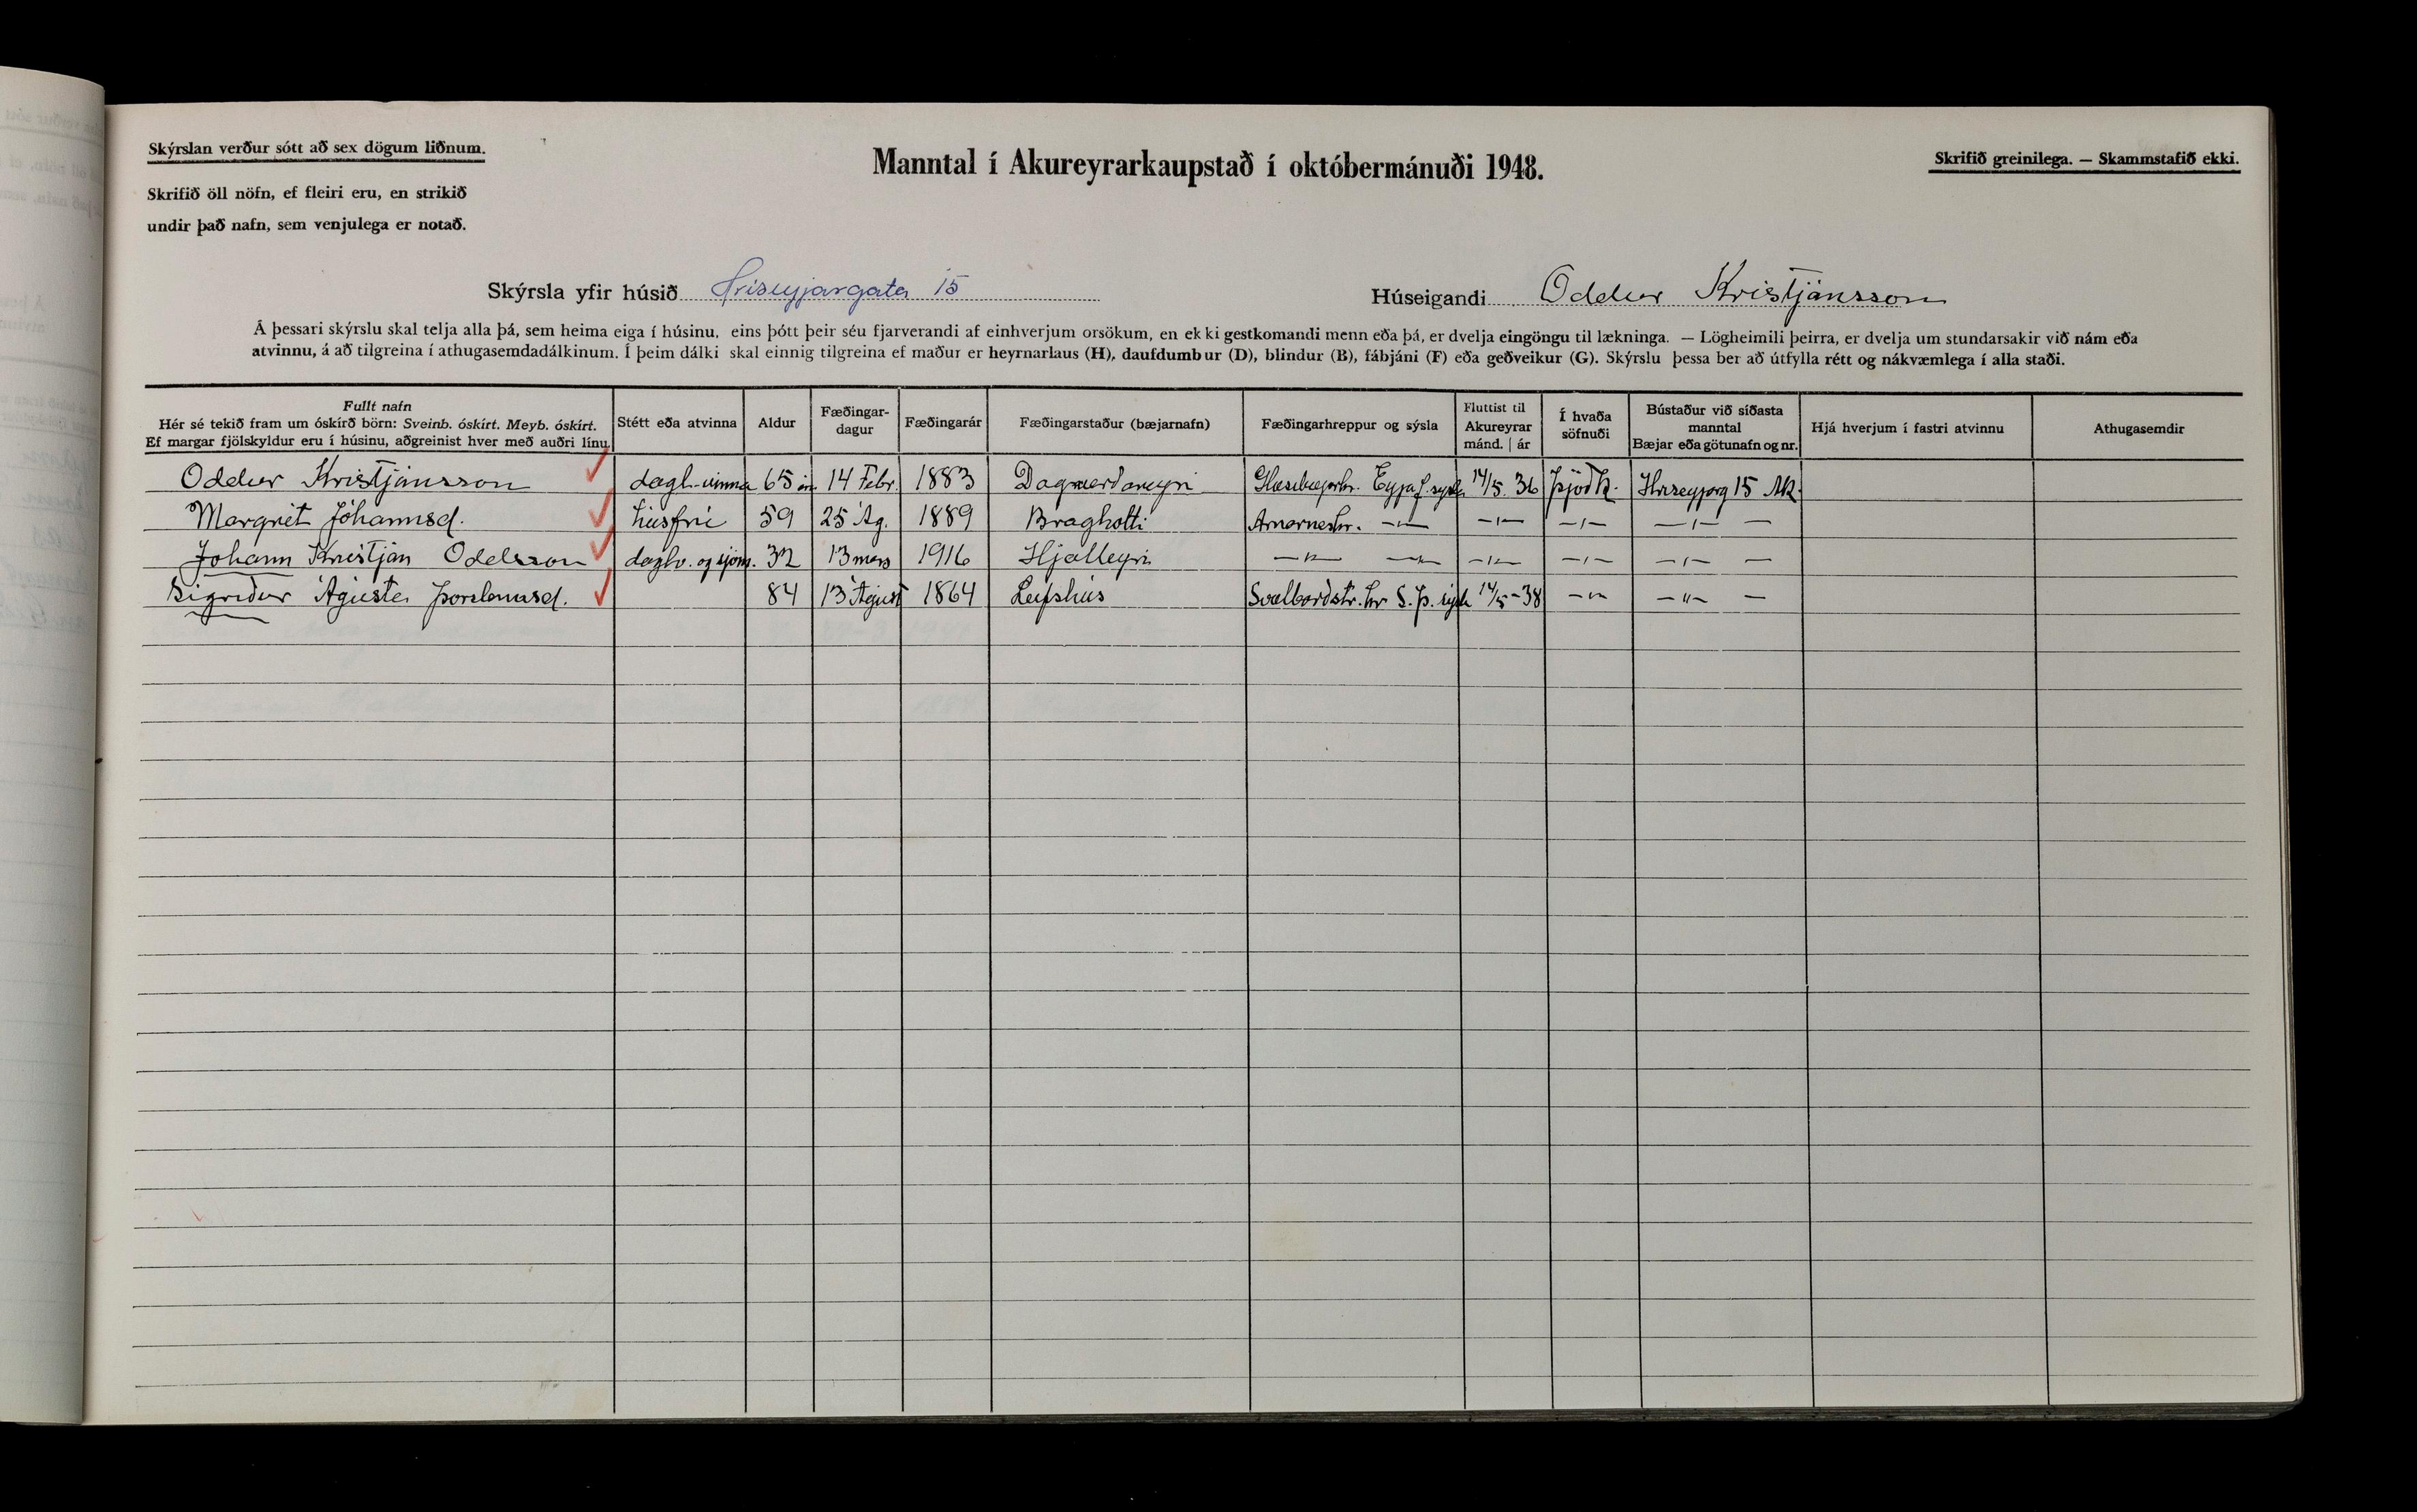 Skýrslan verður sótt að sex dögum liðnum.
Skrifið öll nöfn, ef fleiri eru, en strikið
undir það nafn, sem venjulega er notað.
Manntal í Akureyrarkaupstað í októbermánuði 1948.
Skrifið greinilega. — Skammstafið ekki.
Skýrsla yfir húsið Hríseyjargata 15
Húseigandi Oddur Kristjánsson
Á þessari skýrslu skal telja alla þá, sem heima eiga í húsinu, eins þótt þeir séu fjarverandi af einhverjum orsökum, en ekki gestkomandi menn eða þá, er dvelja eingöngu til lækninga. — Lögheimili þeirra, er dvelja um stundarsakir við nám eða
atvinnu, á að tilgreina í athugasemdadálkinum. Í þeim dálki skal einnig tilgreina ef maður er heyrnarlaus (H), daufdumbur (D), blindur (B), fábjáni (F) eða geðveikur (G). Skýrslu þessa ber að útfylla rétt og nákvæmlega í alla staði.
Fullt nafn
Hér sé tekið fram um óskírð börn: Sveinb. óskírt. Meyb. óskírt.
Ef margar fjölskyldur eru í húsinu, aðgreinist hver með auðri línu.
Stétt eða atvinna
Aldur
Fæðingar-
dagur
Fæðingarár
Fæðingarstaður (bæjarnafn)
Fæðingarhreppur og sýsla
Fluttist til
Akureyrar
mánd. | ár
Í hvaða
söfnuði
Bústaður við síðasta
manntal
Bæjar eða götunafn og nr.
Hjá hverjum í fastri atvinnu
Athugasemdir
Oddur Kristjánsson dagl-vinna 65 ár 14 Febr. 1883 Dagverðareyri Glæsibæjarhr. Eyjaf.sysla 14/5. 36 Þjóðk. Hríseyjarg 15 Ak.
Margrét Jóhannsd. húsfrú 59 25 Ág. 1889 Bragholti Arnarneshr. -〃- -〃- -〃- -〃- -
Jóhann Kristján Oddsson daglv. og sjóm. 32 13 mars 1916 Hjalteyri -〃- -〃- -〃- -〃- -〃- -
Sigríður Ágústa Þorsteinsd. 84 13 Ágúst 1864 Leifshús Svalbarðstr.hr S.Þ. sýsla 14/5-38 -〃- -〃- -